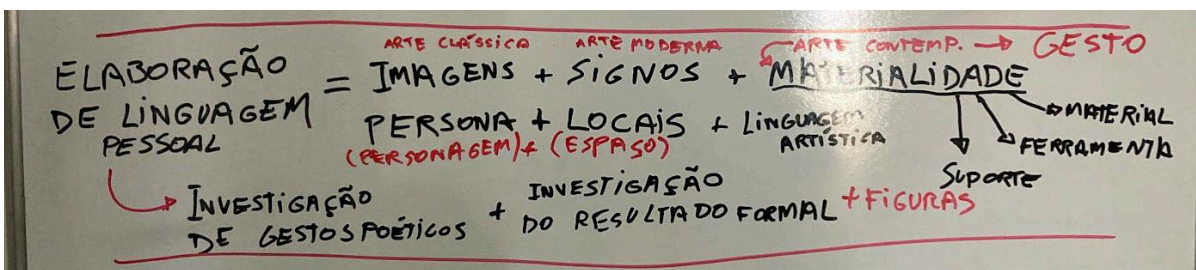 ARTE CLÁSSICA ARTE MODERNA ARTE CONTEMP. → GESTO
ELABORAÇÃO DE LINGUAGEM PESSOAL = IMAGENS + SIGNOS + MATERIALIDADE
PERSONA + LOCAIS + LINGUAGEM ARTÍSTICA
(PERSONAGEM) + (ESPAÇO)
MATERIAL
FERRAMENTA
SUPORTE
INVESTIGAÇÃO DE GESTOS POÉTICOS + INVESTIGAÇÃO DO RESULTADO FORMAL + FIGURAS